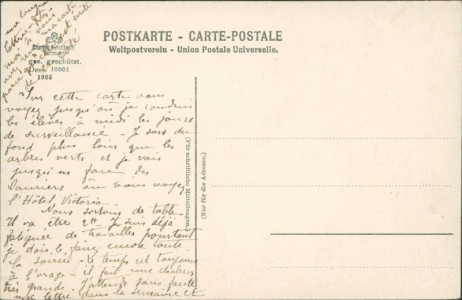 POSTKARTE - CARTE-POSTALE
Weltpostverein - Union Postale Universelle.
ges. geschützt.
Dess. 10001
1905
Sur cette carte vous
voyez jusqu'où je conduis
les élèves à midi les jours
de surveillance - Je sors du
fond plus loin que les
arbres verts et je vais
jusqu'au
où vous voyez
l'Hôtel Victoria.
Nous sortons de table.
Il va être 1h. Je suis déjà
fatiguée de travailler pourtant
je dois le faire encore toute
la soirée - le temps est toujours
à l'orage - il fait une chaleur
très grande. J'attends sans faute
une lettre dans la semaine et
(Für schriftliche Mitteilungen.)
(Nur für die Adresse.)